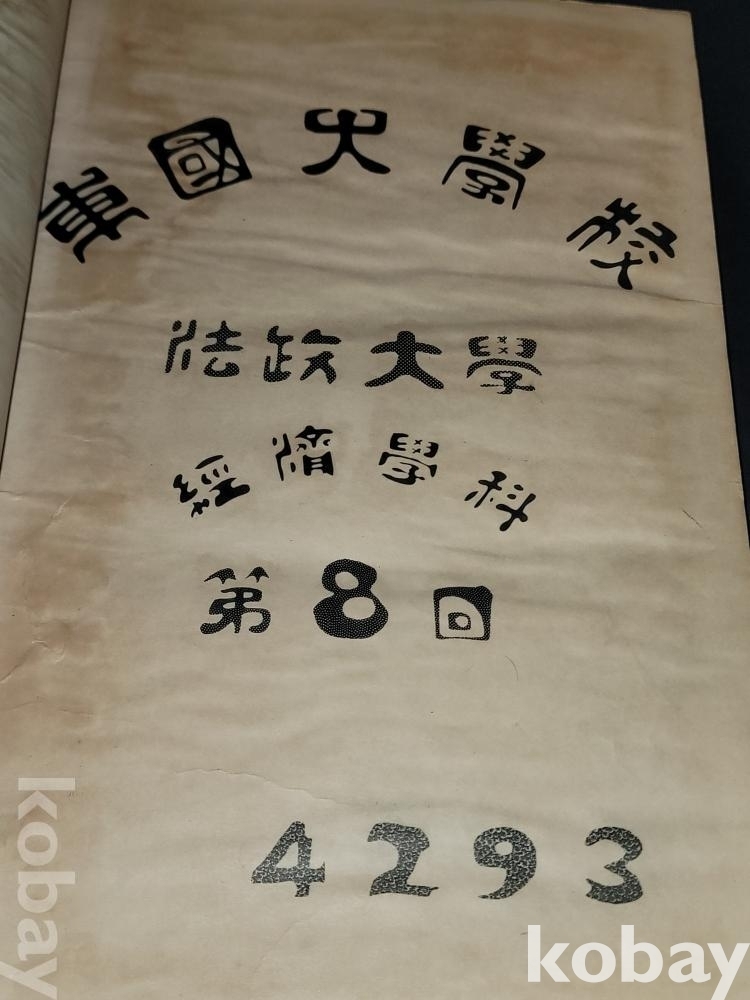 東國大學校
法政大學
經濟學科
第8回
4293
kobay
kobay